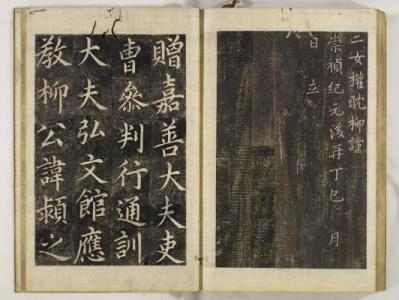 二女權耽柳謹
崇禎紀元後再丁巳 月
日 立
贈嘉善大夫吏
曹參判行通訓
大夫弘文館應
教柳公諱之